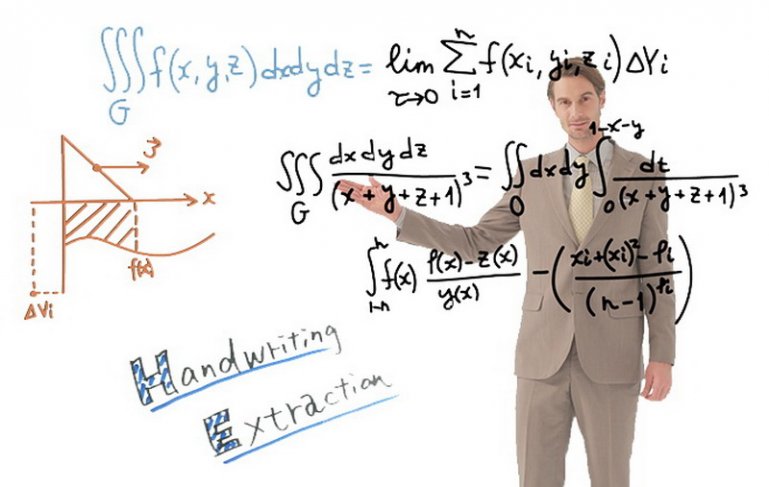 ∭_G f(x, y, z) dxdydz = lim_{τ→0} ∑_{i=1}^{n} f(xi, yi, zi) ΔVi
∭_G dx dy dz / (x + y + z + 1)³ = ∬_0 dxdy ∫_0^{1-x-y} dt / (x + y + z + 1)³
∫_{1-n}^{n} f(x) (f(x) - z(x)) / y(x) - ( (xi + (xi)² - fi) / (n - 1)^{fi} )
x
f(x)
ΔVi
Handwriting
Extraction